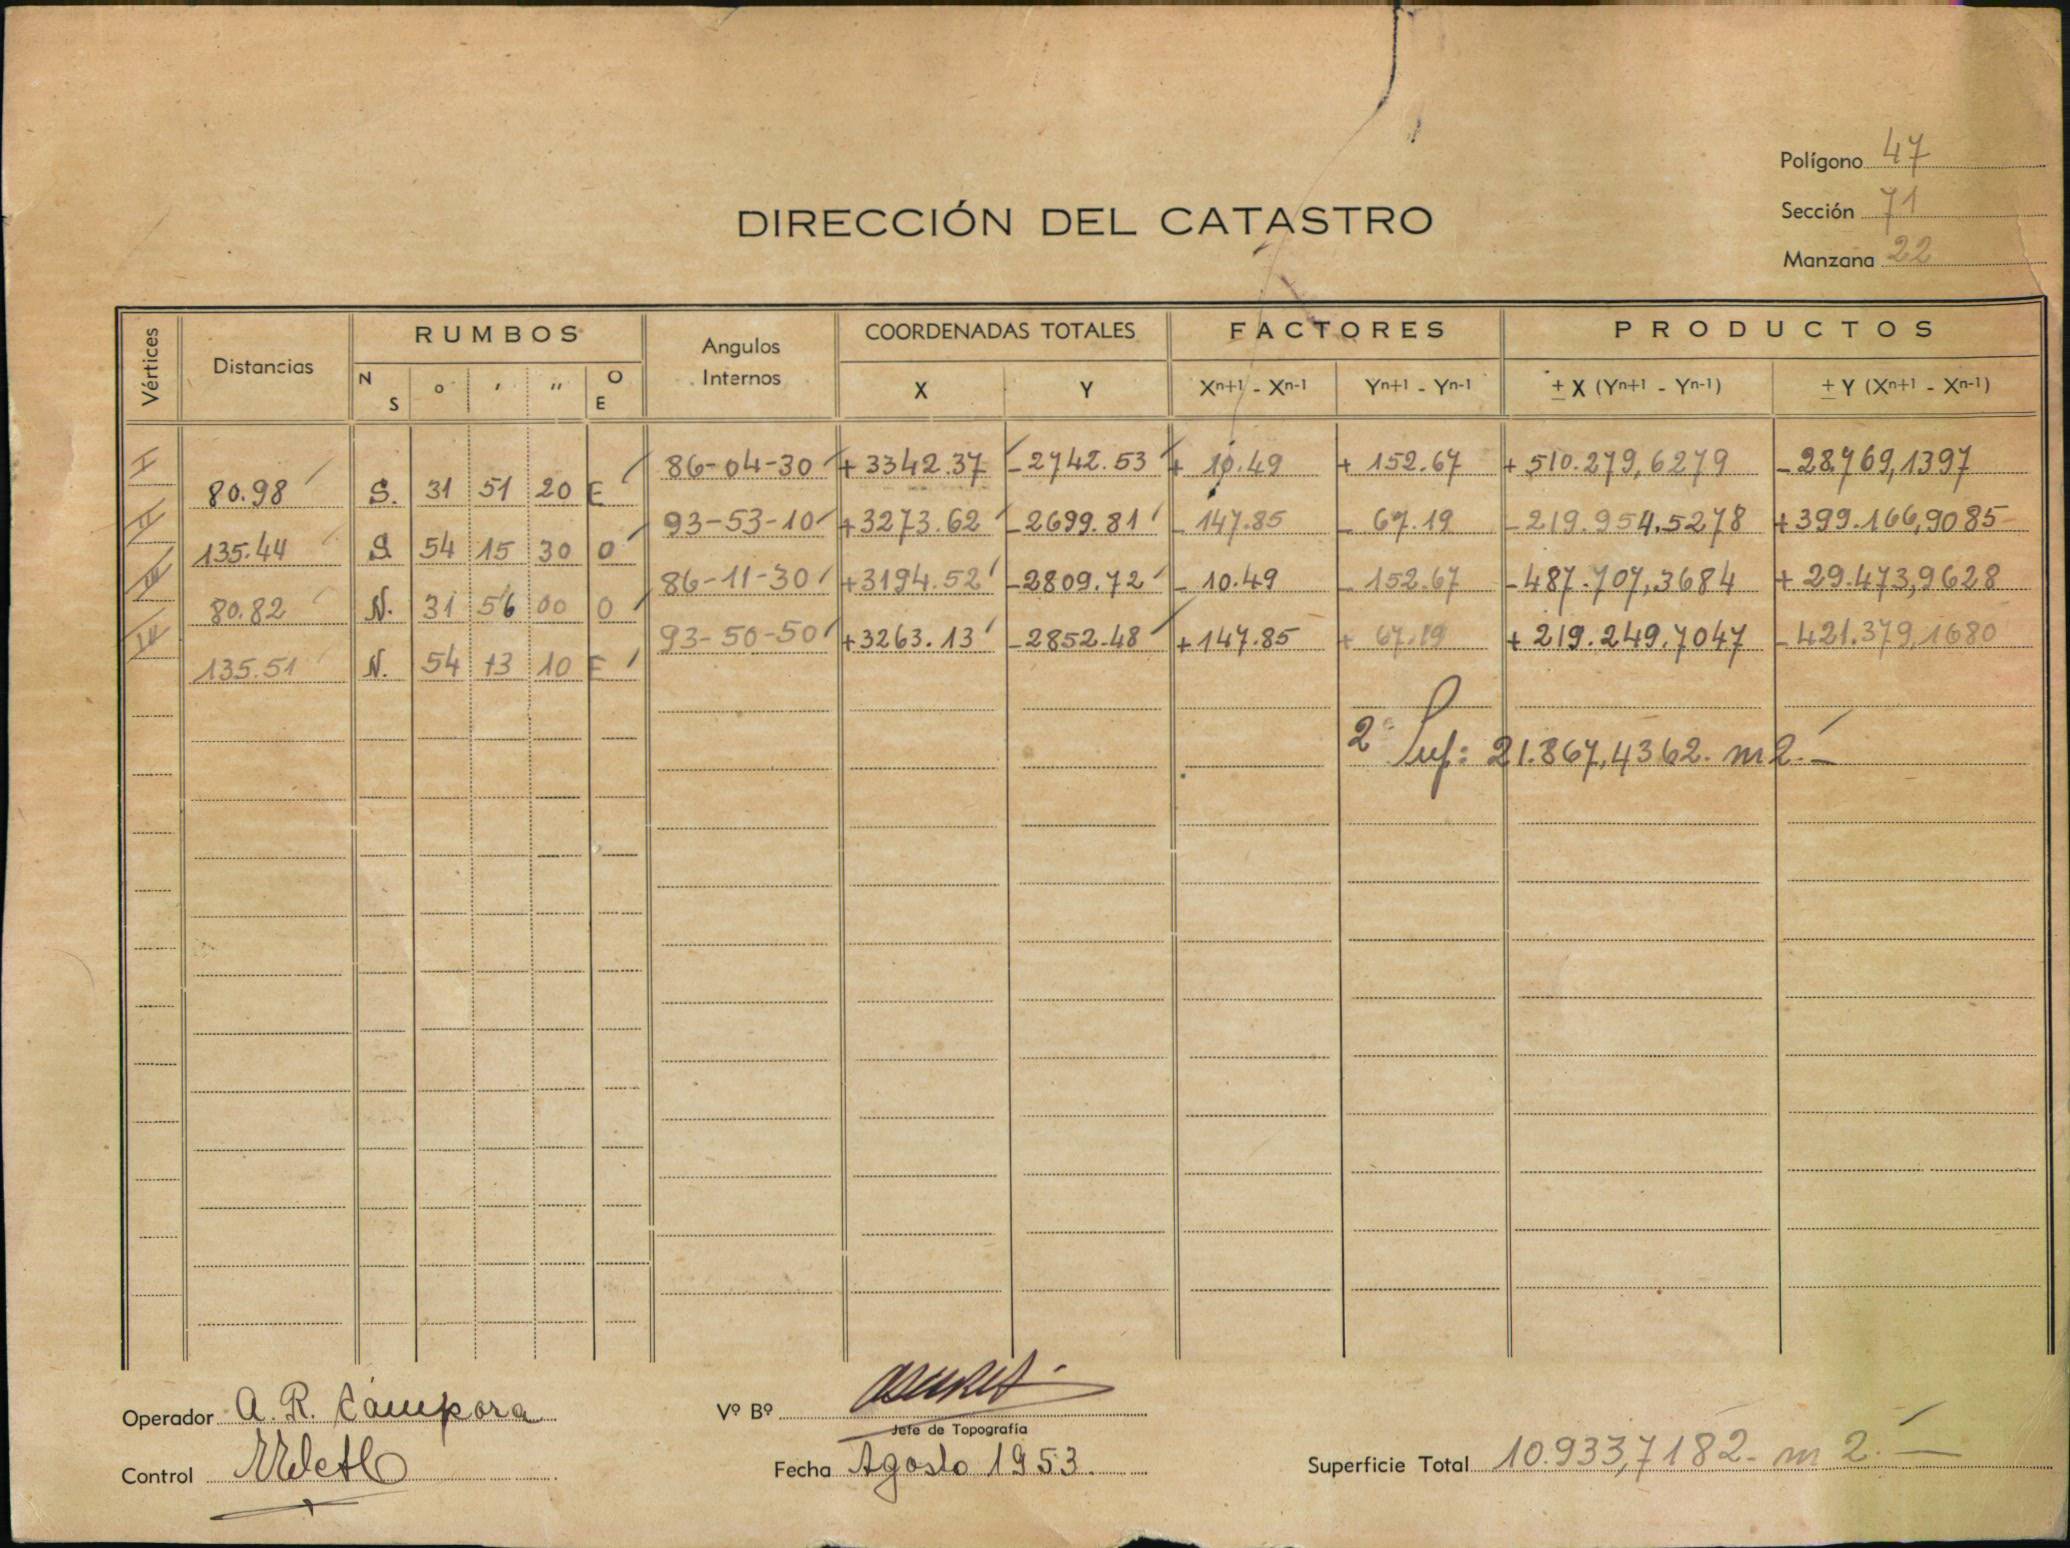 Polígono 47
Sección 71
DIRECCIÓN DEL CATASTRO
Manzana 22
Vértices Distancias RUMBOS Angulos Internos COORDENADAS TOTALES FACTORES PRODUCTOS
N S ° ′ ″ O E X Y Xn+1 - Xn-1 Yn+1 - Yn-1 ± X (Yn+1 - Yn-1) ± Y (Xn+1 - Xn-1)
I 86-04-30 +3342.37 -2742.53 + 10.49 + 152.67 + 510.279,6279 - 28.769,1397
80.98 S. 31 51 20 E
II 93-53-10 +3273.62 -2699.81 - 147.85 - 67.19 - 219.954.5278 +399.166,9085
135.44 S 54 15 30 O
III 86-11-30 +3194.52 -2809.72 - 10.49 - 152.67 -487.707,3684 + 29.473,9628
80.82 N. 31 56 00 O
IV 93-50-50 +3263.13 -2852.48 +147.85 + 67.19 + 219.249.7047 - 421.379,1680
135.51 N. 54 13 10 E
2 Sup: 21.867,4362. m2.-
Operador A. R. Cámpora Vº Bº
Jefe de Topografía
Control Fecha Agosto 1953. Superficie Total 10.933,7182. m2.-